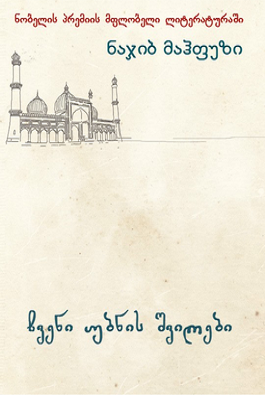 ნობელის პრემიის მფლობელი ლიტერატურაში
ნაჯიბ მაჰფუზი
ჩვენი უბნის შვილები